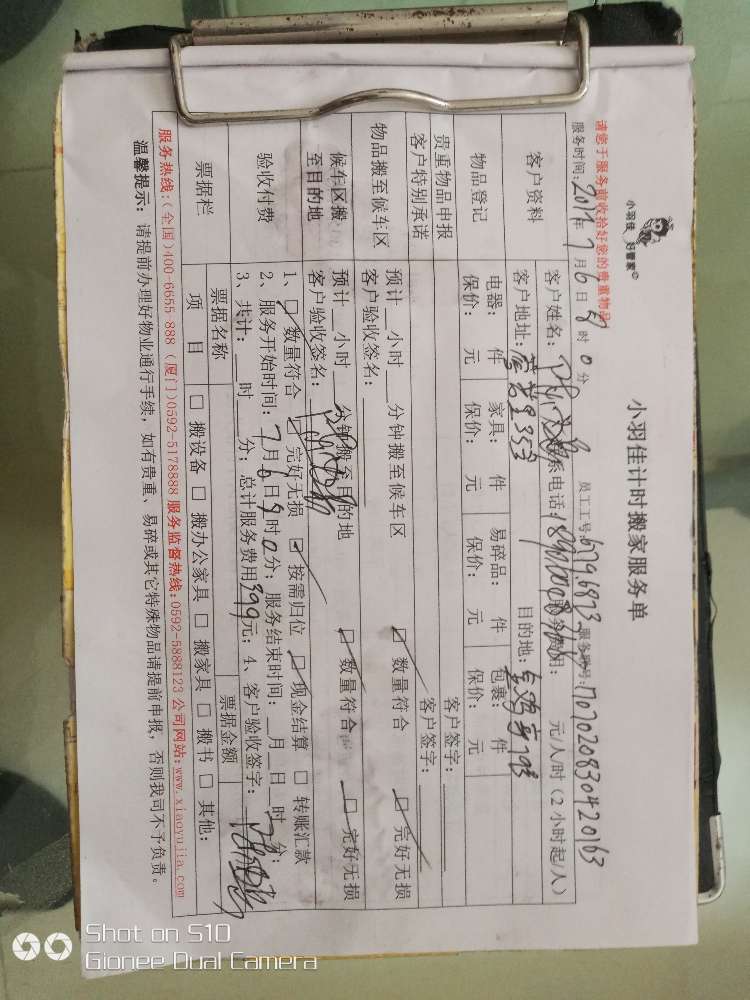 小羽佳 好管家
小羽佳计时搬家服务单
请您于服务前收拾好您的贵重物品
服务时间: 2017年 7月 6日 8时 0分 员工工号: 6796873 服务单号: 1707020830420163
客户资料
客户姓名: 系电话: 元/人/时(2小时起/人)
客户地址: 353 目的地:
物品登记
电器: 件 家具: 件 易碎品: 件 包裹: 件
保价: 元 保价: 元 保价: 元 保价: 元
贵重物品申报 客户签字:
客户特别承诺 客户签字:
物品搬至候车区
预计 小时 分钟搬至候车区 数量符合 完好无损
客户验收签名:
候车区搬至目的地
预计 小时 分钟搬至目的地 数量符合 完好无损
客户验收签名:
验收付费
1、 数量符合 完好无损 按需归位 现金结算 转账汇款
2、服务开始时间: 7月6日9时0分; 服务结束时间: 月 日 时 分;
3、共计: 时 分; 总计服务费用399元; 4、客户验收签字:
票据栏 票据名称 票据金额
项 目 搬设备 搬办公家具 搬家具 搬书 其他:
服务热线:(全国)400-6655-888 (厦门)0592-5178888 服务监督热线:0592-5888123 公司网站:www.xiaoyujia.com
温馨提示: 请提前办理好物业通行手续, 如有贵重、易碎或其它特殊物品请提前申报, 否则我司不予负责。
Shot on S10
Gionee Dual Camera